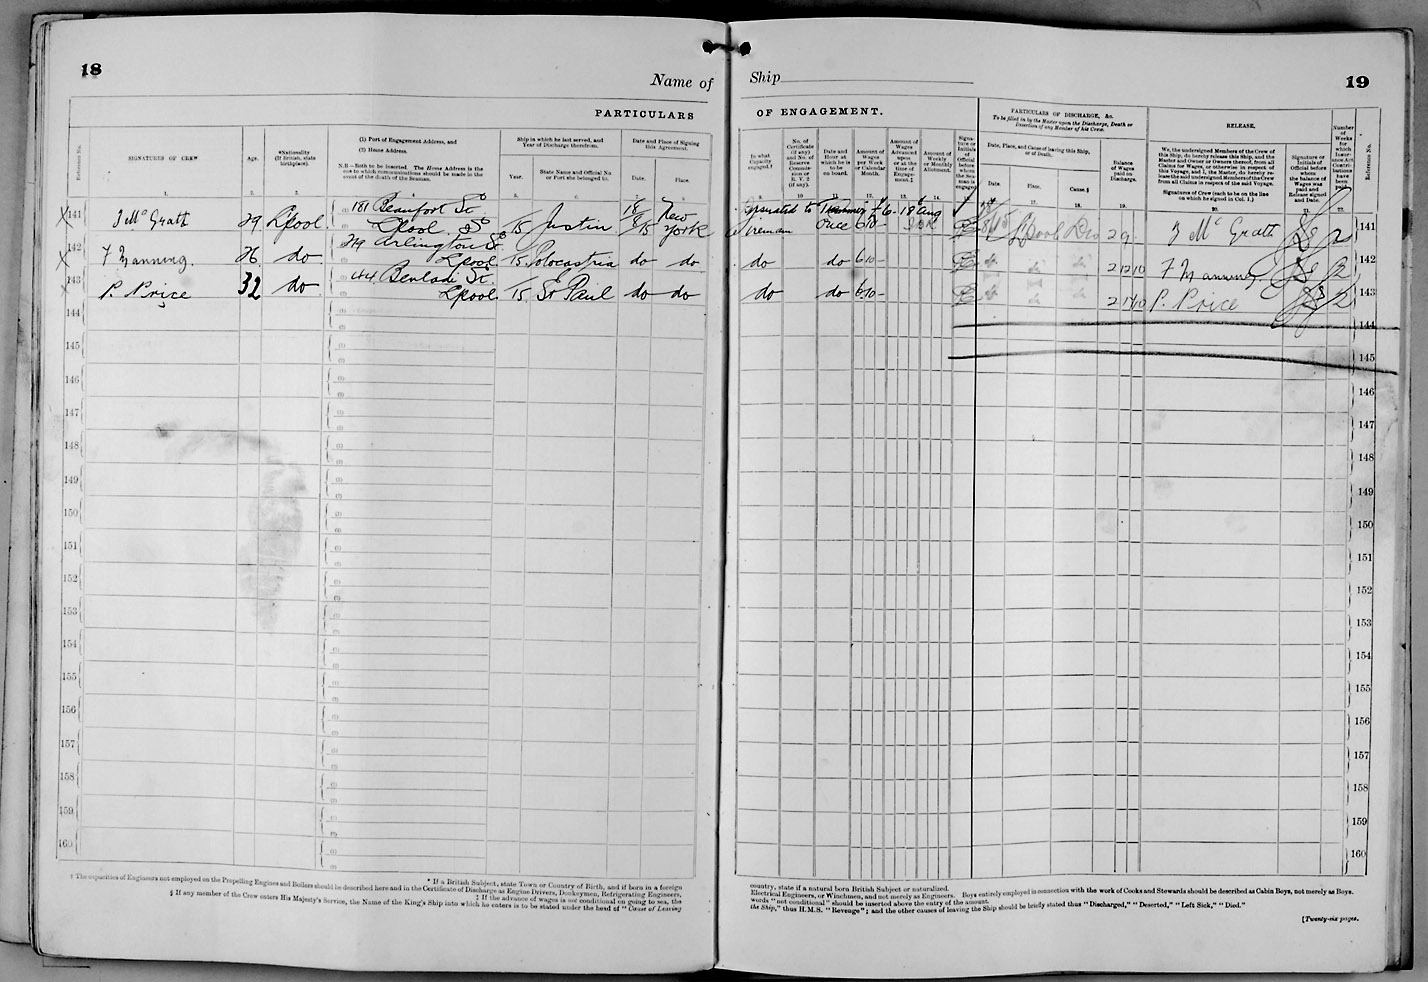 18
Name of Ship
19
PARTICULARS OF ENGAGEMENT.
PARTICULARS OF DISCHARGE, &c.
To be filled in by the Master upon the Discharge, Death or Desertion of any Member of his Crew.
RELEASE.
Reference No.
SIGNATURES OF CREW
Age.
*Nationality
(If British, state birthplace).
(1) Port of Engagement Address, and
(2) Home Address.
N.B.—Both to be inserted. The Home Address is the one to which communications should be made in the event of the death of the Seaman.
Ship in which he last served, and Year of Discharge therefrom.
Year.
State Name and Official No. or Port she belonged to.
Date and Place of Signing this Agreement.
Date.
Place.
In what Capacity engaged.†
No. of Certificate (if any) and No. of Reserve Commission or R.V. 2 (if any).
Date and Hour at which he is to be on board.
Amount of Wages per Week or Calendar Month.
Amount of Wages Advanced upon or at the time of Engagement.‡
Amount of Weekly or Monthly Allotment.
Signature or Initials of Official before whom the Seaman is engaged
Date, Place, and Cause of leaving this Ship, or of Death.
Date.
Place.
Cause.§
Balance of Wages paid on Discharge.
We, the undersigned Members of the Crew of this Ship, do hereby release this Ship, and the Master and Owner or Owners thereof, from all Claims for Wages, or otherwise in respect of this Voyage, and I, the Master, do hereby release the said undersigned Members of the Crew from all Claims in respect of the said Voyage.
Signatures of Crew (each to be on the line on which he signed in Col. 1.)
Signature or Initials of Official before whom the balance of Wages was paid and Release signed and Date.
Number of Weeks for which Insurance Act Contributions have been paid.
Reference No.
141 J McGrath 29 L'pool 181 Beaufort St 15 Justin 18/8/15 New York
L'pool
Fireman once 6 10 - L'pool Dis 2 9 J McGrath 2 141
142 F Manning 26 do 29 Arlington St
L'pool 15 do do
do do 6 10 - 2 12 10 F Manning 2 142
143 P. Price 32 do St
L'pool 15 St Paul do do
do do 6 10 - 2 17 10 P. Price 2 143
144 144
145 145
146 146
147 147
148 148
149 149
150 150
151 151
152 152
153 153
154 154
155 155
156 156
157 157
158 158
159 159
160 160
* If a British Subject, state Town or Country of Birth, and if born in a foreign country, state if a natural born British Subject or naturalized.
† The capacities of Engineers not employed on the Propelling Engines and Boilers should be described here and in the Certificate of Discharge as Engine Drivers, Donkeymen, Refrigerating Engineers, Electrical Engineers, or Winchmen, and not merely as Engineers. Boys entirely employed in connection with the work of Cooks and Stewards should be described as Cabin Boys, not merely as Boys.
‡ If the advance of wages is not conditional on going to sea, the words "not conditional" should be inserted above the entry of the amount.
§ If any member of the Crew enters His Majesty's Service, the Name of the King's Ship into which he enters is to be stated under the head of "Cause of Leaving the Ship," thus H.M.S. "Revenge"; and the other causes of leaving the Ship should be briefly stated thus "Discharged," "Deserted," "Left Sick," "Died."
[Twenty-six pages.